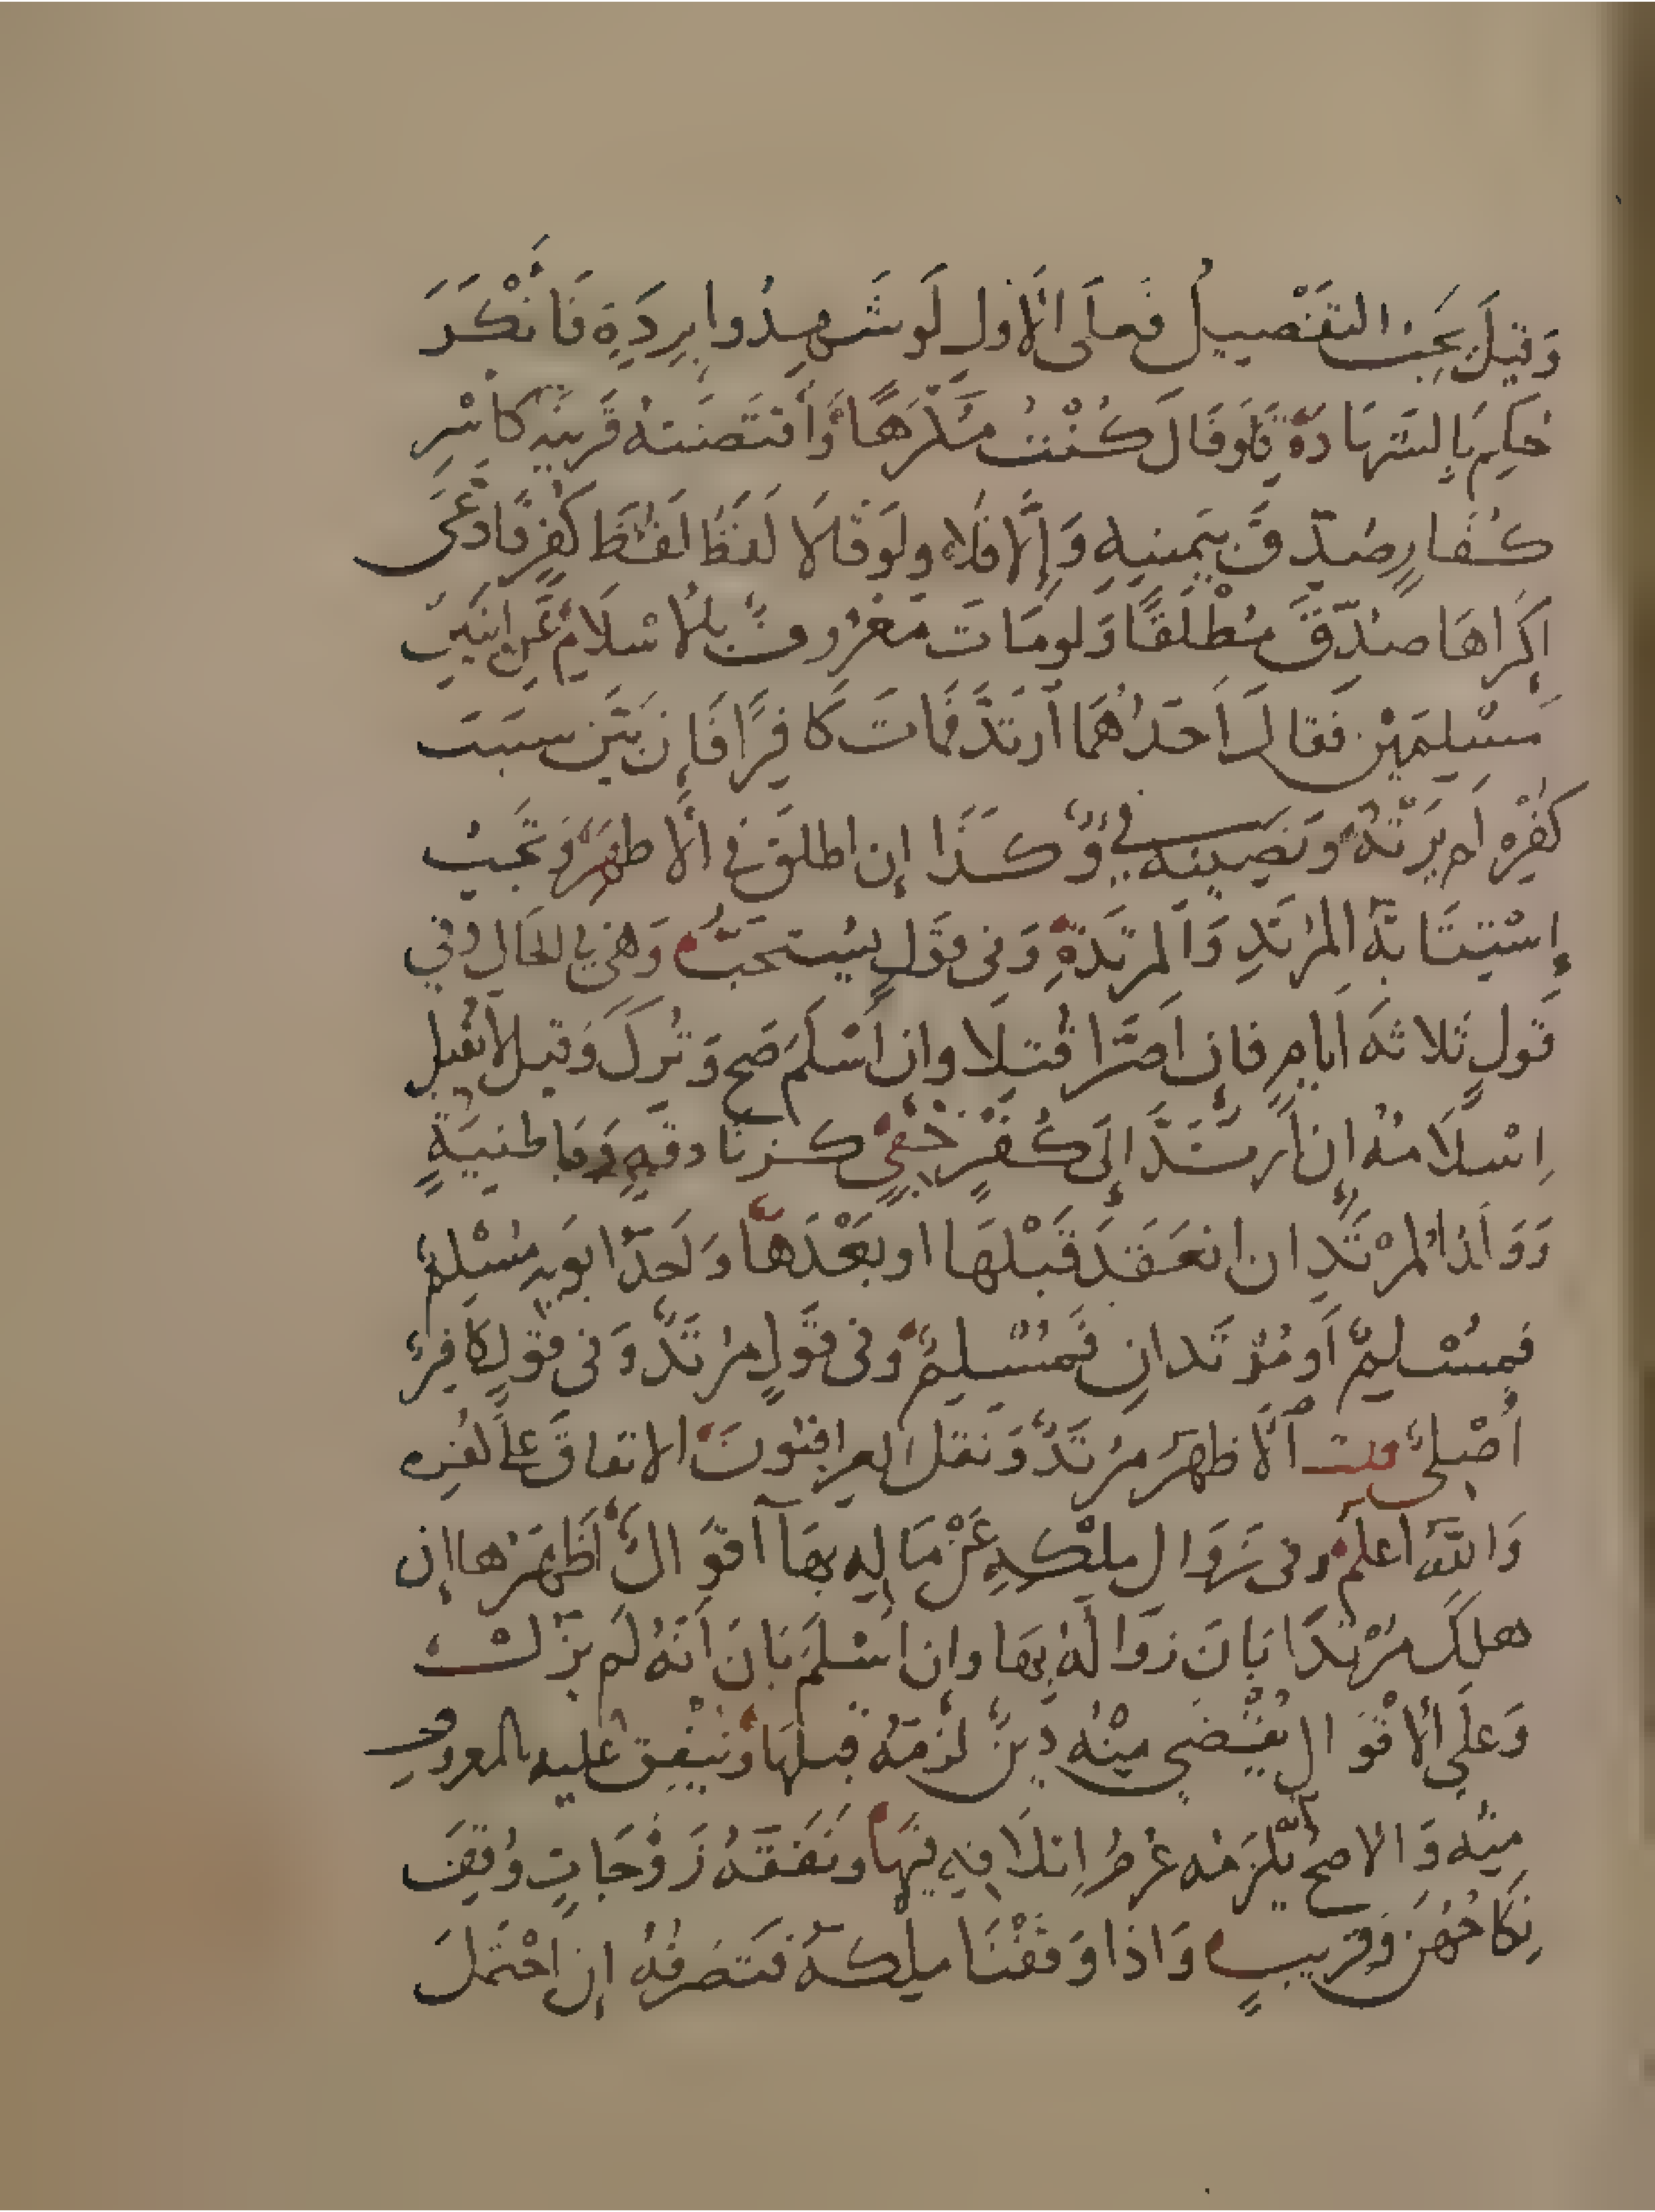 وَقِيلَ يَجِبُ التَفْصِيلُ فَعلَى الأولِ لَو شَهِدُوا بِرِدَةٍ فَأنْكَرَ
حُكِمَ بِالشَهَادَةِ فَلَو قَالَ كُنْتُ مُكْرَهًا وَأقتَضَتهُ قَرِينة كَأسْرِ
كُفَارٍ صُدِّقَ بِيَمِينِهِ وَإِلَّا فَلا ولَوقَالا لَفَظَ لَفظَ كُفرٍ فَادَعَى
إكرَاهَا صُدِّقَ مُطْلَقًا وَلومَاتَ مَعْرُوفٌ بالإسْلَامِ عَنِ ابنَينِ
مُسْلِمَيْنِ فَقالَ أَحَدُهُمَا أرتَدَّ فَمَاتَ كَافِرًا فَإِن بَيَّن سَبَبَ
كفْرِهِ لم يَرِثْهُ ونَصِيبُهُ فَيْءٌ وَكَذَا إِن اطلَقَ فِي الأَظهَرِ وَتَجِبُ
إِسْتِتَابَةُ المُرتَدِ وَالمرتَدَةِ وَفى قَوْلٍ يُستَحَبُّ وَهْيَ فِي الحَالِ وَفي
قَولٍ ثَلاثهَ أيامٍ فإن أصَرَّا قُتِلَا وإن أسْلَمَ صَح وَتُرِكَ وَقيلَ لَا يُقبلُ
إسْلَامُهُ إن ارتَدَّ إِلَى كُفْرٍ خَفِيٍّ كَزنَادِقَةٍ وَبَاطِنِيَةٍ
وَوَلَدُ المُرْتَدِ ان انعَقَدَ قَبْلهَا او بَعْدَهَا وَأحَدُ ابوَيهِ مُسْلِمٌ
فمُسْلِمٌ أَو مُرْتَدانِ فَمُسْلِمٌ وَفى قَوْلٍ مُرْتَدٌّ وَفِي قَوْلٍ كَافِرٌ
أصْلِىٌّ قلت ألأَظهَرُ مُرْتَدٌّ وَنَقلَ العِراقِيُونَ الاتفاقَ عَلَى كُفرِه
وَاللَّهُ أعلَمُ وفى زَوَالِ مِلْكِهِ عَنْ مَالِهِ بهَا أَقوَالٌ أَظْهَرُها إن
هلَكَ مُرْتَدًا بَانَ زَوَالُهُ بِهَا وإن أسْلَمَ بَانَ أنهُ لَم يزُلْ
وَعلَى الأقْوَالِ يُقْضَى مِنْهُ دَينٌ لَزِمَهُ قبلهَا وَيُنفِقُ عليه بالمعروفِ
مِنْه وَالاصحُ يَلْزَمُهُ غُرمُ إتلَافِهِ فِيهَا وَنَفَقَةُ زَوْجَاتٍ وُقِفَ
نِكَاحُهُنَ وَقَرِيبٍ وَاذَا وَقَفْنَا مِلكَهُ فَتَصَرفُهُ إن احْتَمَلَ